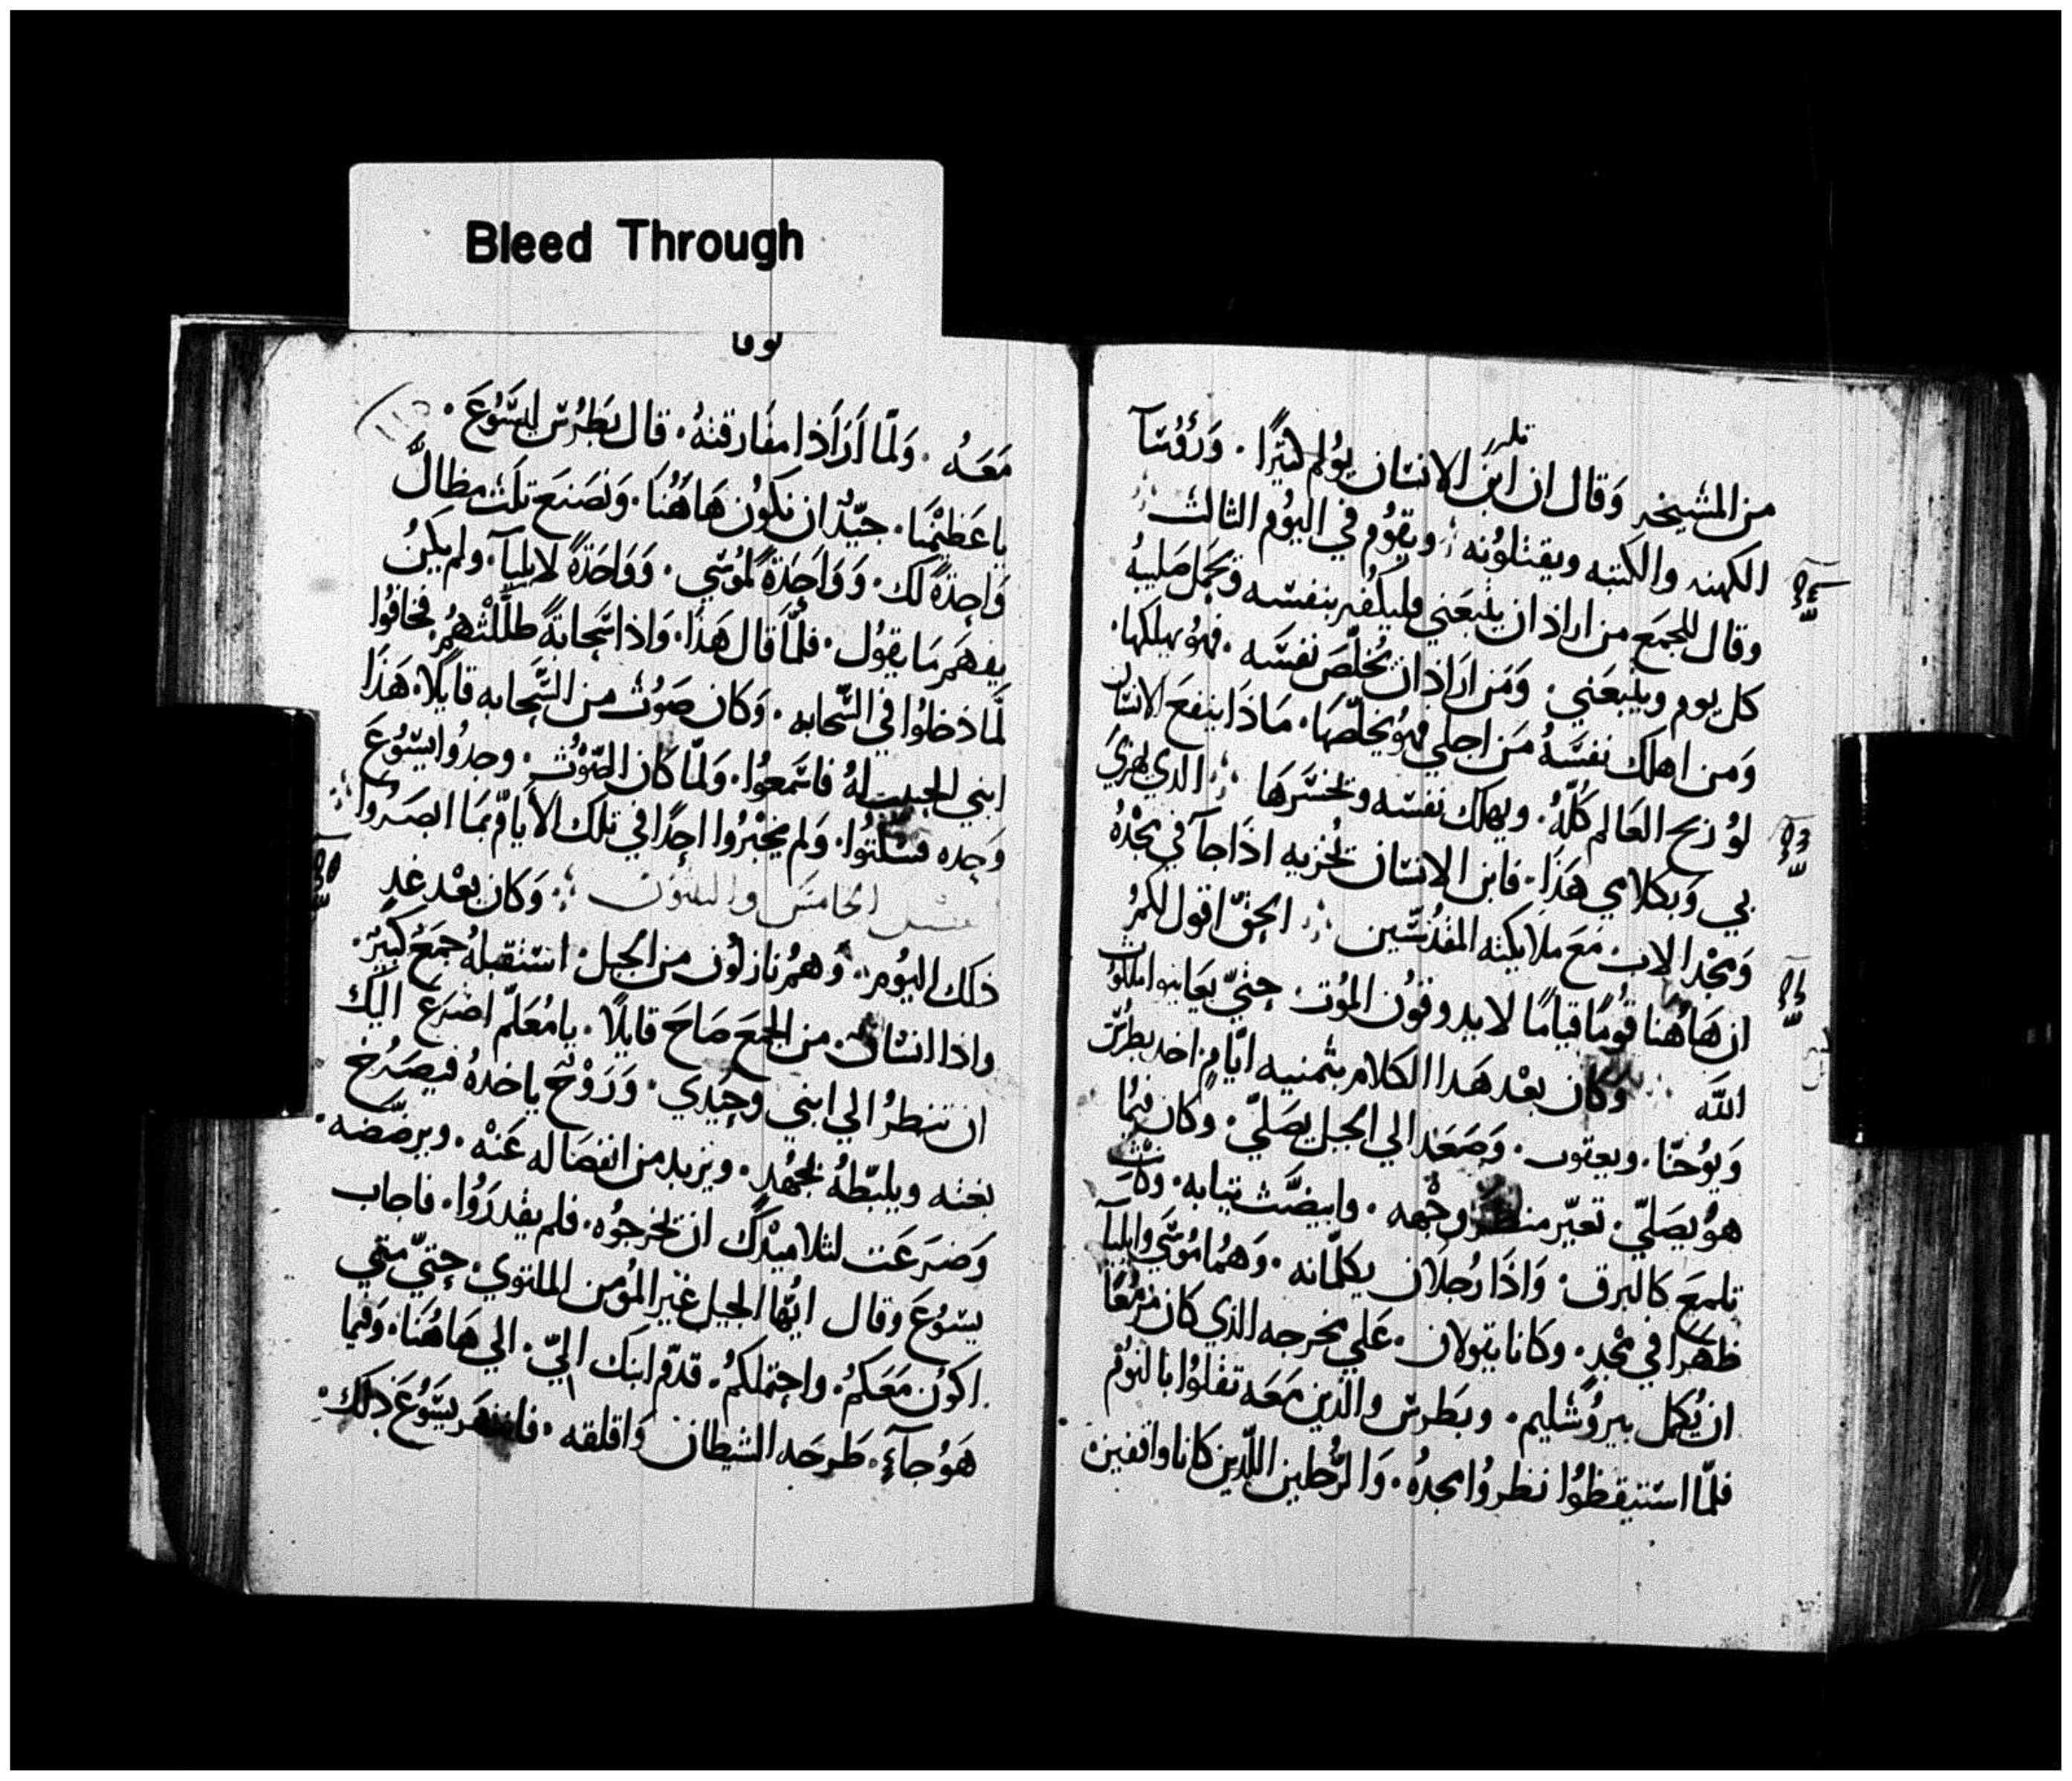 Bleed Through
لوقا
من المشيخه وقال ان ابن الانسان يولم كثيرًا. ورؤسآ
الكهنه والكتبه ويقتلونه ؛ ويقوم في اليوم الثالث
وقال للجمع من اراد ان يتبعني فليكفر بنفسه ويحمل صليبهُ
كل يوم ويتبعني. ومَن اراد ان يُخلّصَ نفسَه. فهو يهلكها.
وَمن اهلك نفسَهُ مَن اجلي فهو يخلّصَها. مَاذَا ينفعَ الانسان
لوْ ربح العَالم كلّهُ. ويهلك نفسَه ويخسَرهَا ؛ الذي يهزيَ
بي وَبكلامي هَذا. فابن الانسان يُخزيه اذَا جآ في مجْدهُ
وَمجْد الاب مَعَ ملايكته المقدسين ؛ الحَقّ اقول لكمُ
ان هَاهُنا قومًا قيامًا لا يدوقون الموْت حتيّ يعَاينوا ملكوت
اللَّه وَكان بعْد هَدا الكلام بثمنيه ايّام اخد بطرسَ
وَيوُحَنّا. ويعقوب. وَصَعَد الي الجبل يصَليّ. وكان فيمَا
هوُ يصَليّ. تغيّر منظَر وجْهه. وابيضّت تيابه. وكانت
تلمعَ كالبرق. وَاذَا رُجلان يكلّمانه. وَهمُا موُسَي وايليآ
ظهَرا في مجْدٍ. وكانا يقولان. عَلي مخرجه الذي كان مزمعًا
ان يُكمل بيروُشليم. وبَطرسَ والذين مَعَه تقلوُا بالنوم
فلمّا استيقظوُا نظروُا مجدهُ. وَالرّجلين اللّدين كانا واقفين
مَعَهُ. وَلمّا اَرَاَدَا مفَارقتهُ. قال بَطرسَ ليسَوُعَ.
ياعَظيمْنَا. جيّدٌ ان نكوُن هَاهَُنا. وَنصَنعَ تلث مظالّ
وَاحِدةً لك. وَوَاحَدَةً لموُسَي. وَوَاحَدةً لايليآ. ولم يكنُ
يفهمَ مَا يقوُل. فلمَّا قال هَذا. وَاذا سَحابَةً ظلّلتْهُم فخافوُا
لمَّا دخلوُا في السَّحابه. وَكان صَوُت من السَّحابه قايلًا. هَذَا
ابني الحبيب لهُ فاسَمعوُا. وَلمّا كان الصّوُت. وجدوُا يسَوُعَ
وَحده فسَكتوُا. وَلم يخبْروُا احدًا في تلك الايّام بمَا ابصَروا ؛
الخامسَ والتلتون ؛ وَكان بعْد غدٍ
ذلك اليوُم. وَهمُ نازلوُن من الجبل. استقبلهُ جمَعَُ كبيرٌ.
واذا انسَان. من الجمَعَ صَاحَ قايلًا. يا مُعَلمّ اضرَعَ اليك
ان تنظرُ الي ابني وحيْدي. وَرَوُحٌ ياخدهُ فيصَرُخ
بغته ويلبّطهُ بجهُدٍ. ويزيد من انفصَاله عَنهْ. ويرضّضه.
وَضرَعَت لتلاميْدكَ ان يخرجوُه. فلم يقدرَوُا. فاجاب
يسَوُعَ وقال ايّها الجيل غيَر الموُمن الملتوي. حتيّ متي
اكوُن مَعَكمُ. واحتملكمُ. قدّم ابنَك اليّ. الي هَاهُنَا. وَفيما
هَوُ جآءٍ. طَرحَه الشيطان وَاقلقه. فانتهَر يسَوُعَ ذلكَ